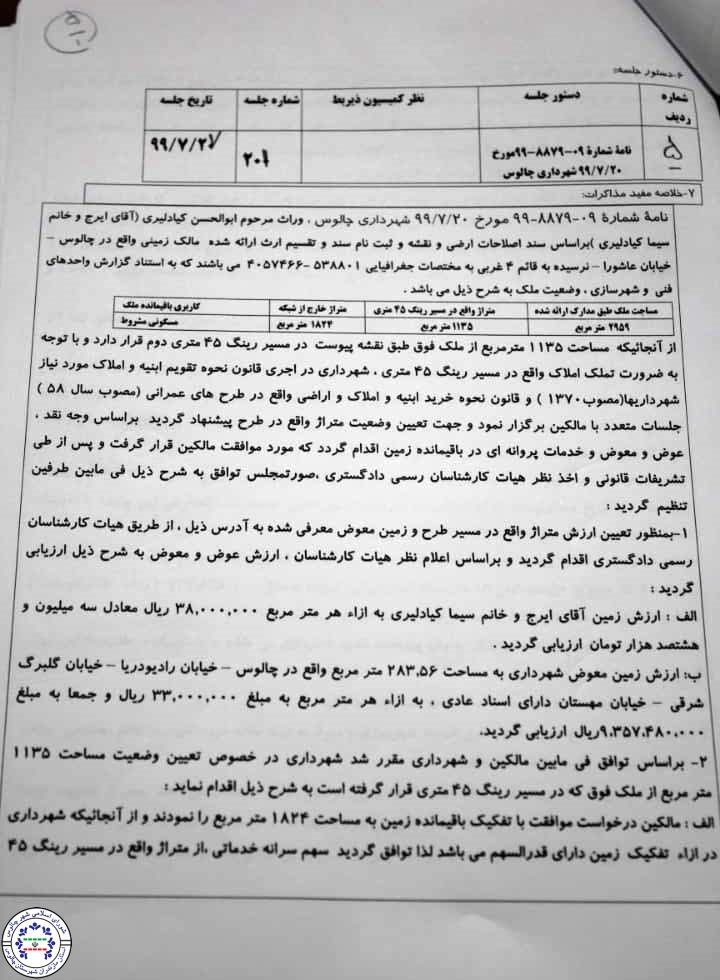 ۶-دستور جلسه:
شماره ردیف
دستور جلسه
نظر کمیسیون ذیربط
شماره جلسه
تاریخ جلسه
۵
نامهٔ شمارهٔ ۰۹-۸۸۷۹-۹۹مورخ
۹۹/۷/۲۰ شهرداری چالوس
۲۰۱
۹۹/۷/۲۱
۷-خلاصه مفید مذاکرات:
نامهٔ شمارهٔ ۰۹-۸۸۷۹-۹۹ مورخ ۹۹/۷/۲۰ شهرداری چالوس ، وراث مرحوم ابوالحسن کیادلیری (آقای ایرج و خانم
سیما کیادلیری )براساس سند اصلاحات ارضی و نقشه و ثبت نام سند و تقسیم ارث ارائه شده مالک زمینی واقع در چالوس –
خیابان عاشورا – نرسیده به قائم ۴ غربی به مختصات جغرافیایی ۵۳۸۸۰۱ -۴۰۵۷۴۶۶ می باشند که به استناد گزارش واحدهای
فنی و شهرسازی ، وضعیت ملک به شرح ذیل می باشد .
مساحت ملک طبق مدارک ارائه شده
متراژ واقع در مسیر رینگ ۴۵ متری
متراژ خارج از شبکه
کاربری باقیمانده ملک
۲۹۵۹ متر مربع
۱۱۳۵متر مربع
۱۸۲۴ متر مربع
مسکونی مشروط
از آنجائیکه مساحت ۱۱۳۵ مترمربع از ملک فوق طبق نقشه پیوست در مسیر رینگ ۴۵ متری دوم قرار دارد و با توجه
به ضرورت تملک املاک واقع در مسیر رینگ ۴۵ متری ، شهرداری در اجری قانون نحوه تقویم ابنیه و املاک مورد نیاز
شهرداریها(مصوب۱۳۷۰ ) و قانون نحوه خرید ابنیه و املاک و اراضی واقع در طرح های عمرانی (مصوب سال ۵۸ )
جلسات متعدد با مالکین برگزار نمود و جهت تعیین وضعیت متراژ واقع در طرح پیشنهاد گردید براساس وجه نقد ،
عوض و معوض و خدمات پروانه ای در باقیمانده زمین اقدام گردد که مورد موافقت مالکین قرار گرفت و پس از طی
تشریفات قانونی و اخذ نظر هیات کارشناسان رسمی دادگستری ،صورتمجلس توافق به شرح ذیل فی مابین طرفین
تنظیم گردید :
۱-بمنظور تعیین ارزش متراژ واقع در مسیر طرح و زمین معوض معرفی شده به آدرس ذیل ، از طریق هیات کارشناسان
رسمی دادگستری اقدام گردید و براساس اعلام نظر هیات کارشناسان ، ارزش عوض و معوض به شرح ذیل ارزیابی
گردید :
الف : ارزش زمین آقای ایرج و خانم سیما کیادلیری به ازاء هر متر مربع ۳۸,۰۰۰,۰۰۰ ریال معادل سه میلیون و
هشتصد هزار تومان ارزیابی گردید .
ب: ارزش زمین معوض شهرداری به مساحت ۲۸۳,۵۶ متر مربع واقع در چالوس – خیابان رادیودریا – خیابان گلبرگ
شرقی – خیابان مهستان دارای اسناد عادی ، به ازاء هر متر مربع به مبلغ ۳۳,۰۰۰,۰۰۰ ریال و جمعا به مبلغ
۹,۳۵۷,۴۸۰,۰۰۰ریال ارزیابی گردید.
۲- براساس توافق فی مابین مالکین و شهرداری مقرر شد شهرداری در خصوص تعیین وضعیت مساحت ۱۱۳۵
متر مربع از ملک فوق که در مسیر رینگ ۴۵ متری قرار گرفته است به شرح ذیل اقدام نماید :
الف : مالکین درخواست موافقت با تفکیک باقیمانده زمین به مساحت ۱۸۲۴ متر مربع را نمودند و از آنجائیکه شهرداری
در ازاء تفکیک زمین دارای قدرالسهم می باشد لذا توافق گردید سهم سرانه خدماتی ،از متراژ واقع در مسیر رینگ ۴۵
شورای اسلامی شهر چالوس
استان مازندران شهرستان چالوس